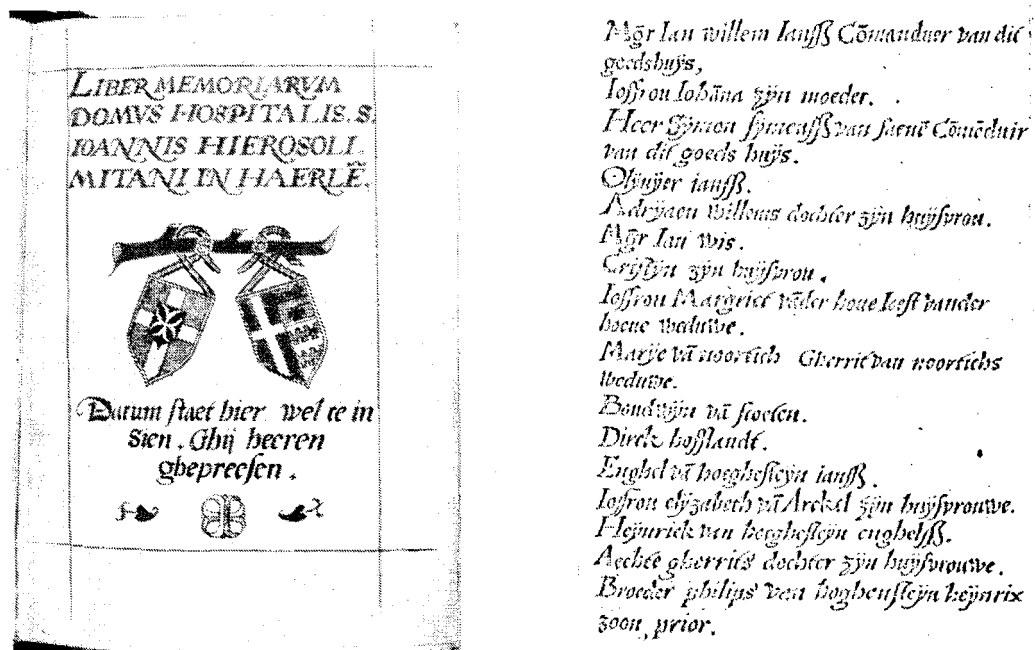 LIBER MEMORIARVM
DOMVS HOSPITALIS. S.
IOANNIS HIEROSOLI
MITANI IN HAERLẼ.
Datum staet hier wel te in
Sien. Ghij heeren
ghepreesen.
Mgr̃ Ian willem Ianssß Cõmanduer van dit
goedshuÿs,
Ioffrou Iohãna zÿn moeder.
Heer Sÿmon sÿmensß van saenẽ Cõmẽduir
van dit goeds huÿs.
Olÿuÿer iansß.
Adrÿaen willems dochter zÿn huÿsvrou.
Mgr̃ Ian wis.
Cristÿn zÿn huÿsvrou.
Ioffrou Margriet vãder houe Ioest vander
hoeue weduwe.
Marÿe vã noortich Gherrit van noortichs
weduwe.
Boudwÿn vã scoten.
Dirck hofflandt.
Enghel vã hoeghesteÿn iansß.
Ioffrou elÿzabeth vã Arckel zÿn huÿsvrouwe.
Heÿnrick van hoeghesteÿn enghelsß.
Aechte gherrits dochter zÿn huÿsvrouwe.
Broeder philips van hoghensteÿn heÿnrix
zoon, prior.